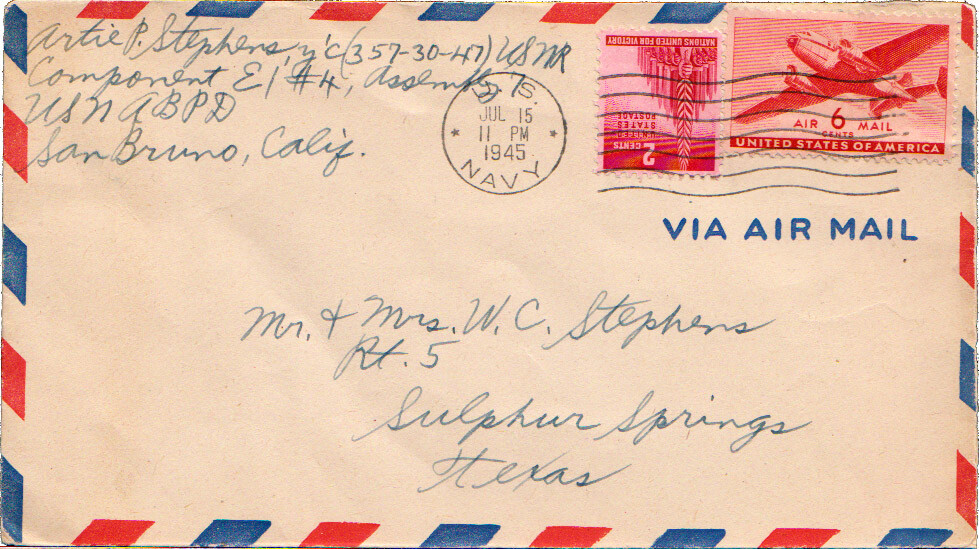 Artie P. Stephens Y'C (357-30-47) USNR
Component E1 #4, Assembly 75
USN ABPD
San Bruno, Calif.
U.S.
JUL 15
11 PM
1945
NAVY
NATIONS UNITED FOR VICTORY
UNITED STATES POSTAGE
2 CENTS
AIR 6 MAIL
CENTS
UNITED STATES OF AMERICA
VIA AIR MAIL
Mr. & Mrs. W. C. Stephens
Rt. 5
Sulphur Springs
Texas